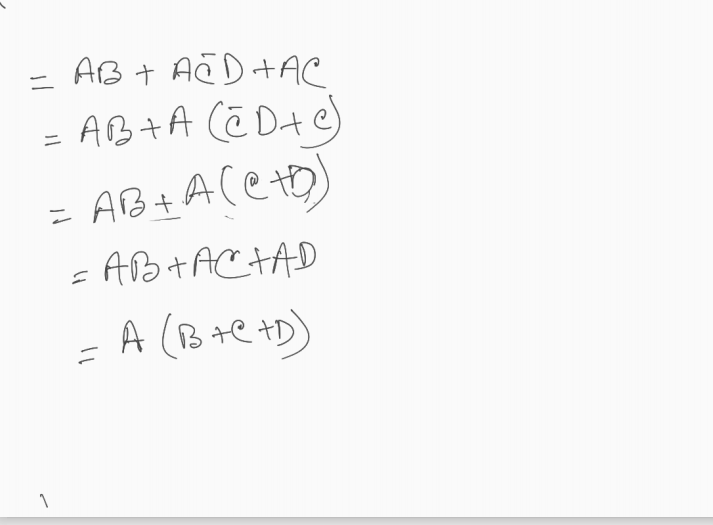 = AB + AC̄D + AC
= AB + A (C̄D + C)
= AB + A (C + D)
= AB + AC + AD
= A (B + C + D)